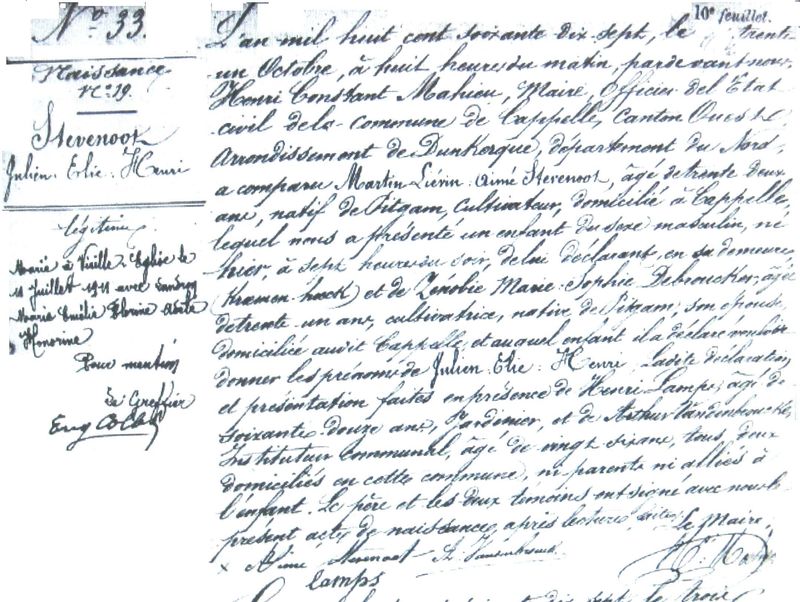 10e feuillet.
No 33.
Naissance
No 19.
Stevenoot
Julien. Elie. Henri
légitime
Marié à Vieille-Eglise le
11 Juillet 1911 avec Landroy
Marie Emélie Florine Adèle
Honorine
Pour mention
Le Greffier
L'an mil huit cent soixante dix sept, le trente
un Octobre, à huit heures du matin, pardevant nous,
Henri Constant Mahieu, Maire, Officier de l'Etat
civil de la commune de Cappelle, Canton Ouest,
Arrondissement de Dunkerque, département du Nord,
a comparu Martin Liévin Aimé Stevenoot, âgé de trente deux
ans, natif de Pitgam, Cultivateur, domicilié à Cappelle,
lequel nous a présenté un enfant du sexe masculin, né
hier, à sept heures du soir, de lui déclarant, en sa demeure
(Kramen-hoeck) et de Zénobie Marie Sophie Debroucker, âgée
de trente un ans, cultivatrice, native de Pitgam, son épouse,
domiciliée audit Cappelle, et auquel enfant il a déclaré vouloir
donner les prénoms de Julien. Elie. Henri. Ladite déclaration
et présentation faites en présence de Henri Lamps, âgé de
soixante douze ans, Jardinier, et de Arthur Vandenbroucke,
Instituteur communal, âgé de vingt six ans, tous deux
domiciliés en cette commune, ni parents ni alliés à
l'enfant. Le père et les deux témoins ont signé avec nous le
présent acte de naissance, après lecture faite. Le Maire,
Aimé Stevenoot
Lamps
dix sept, le trois